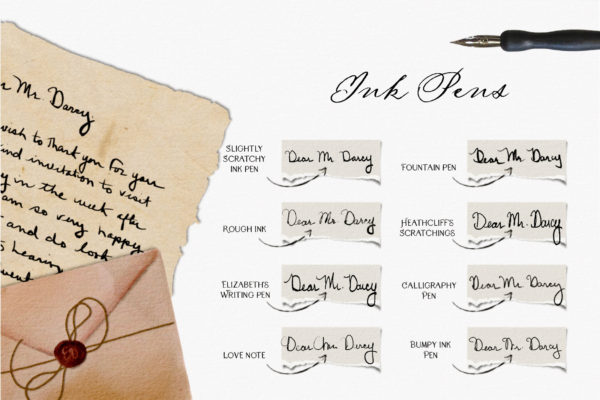 Mr. Darcy
wish to thank you for your
kind invitation to visit
in the week after
am so very happy
and do look
hearing
Ink Pens
SLIGHTLY
SCRATCHY
INK PEN
Dear Mr. Darcy
FOUNTAIN PEN
Dear Mr. Darcy
ROUGH INK
Dear Mr. Darcy
HEATHCLIFF'S
SCRATCHINGS
Dear Mr. Darcy
ELIZABETH'S
WRITING PEN
Dear Mr. Darcy
CALLIGRAPHY
PEN
Dear Mr. Darcy
LOVE NOTE
Dear Mr. Darcy
BUMPY INK
PEN
Dear Mr. Darcy